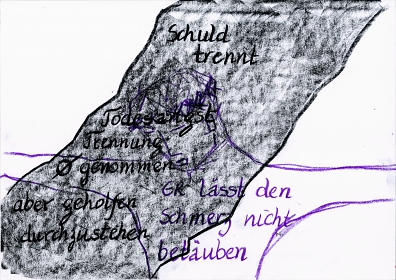 Schuld
trennt
Todesangst
Trennung
Ø genommen
aber geholfen
durchzustehen
ER lässt den
Schmerz nicht
betäuben